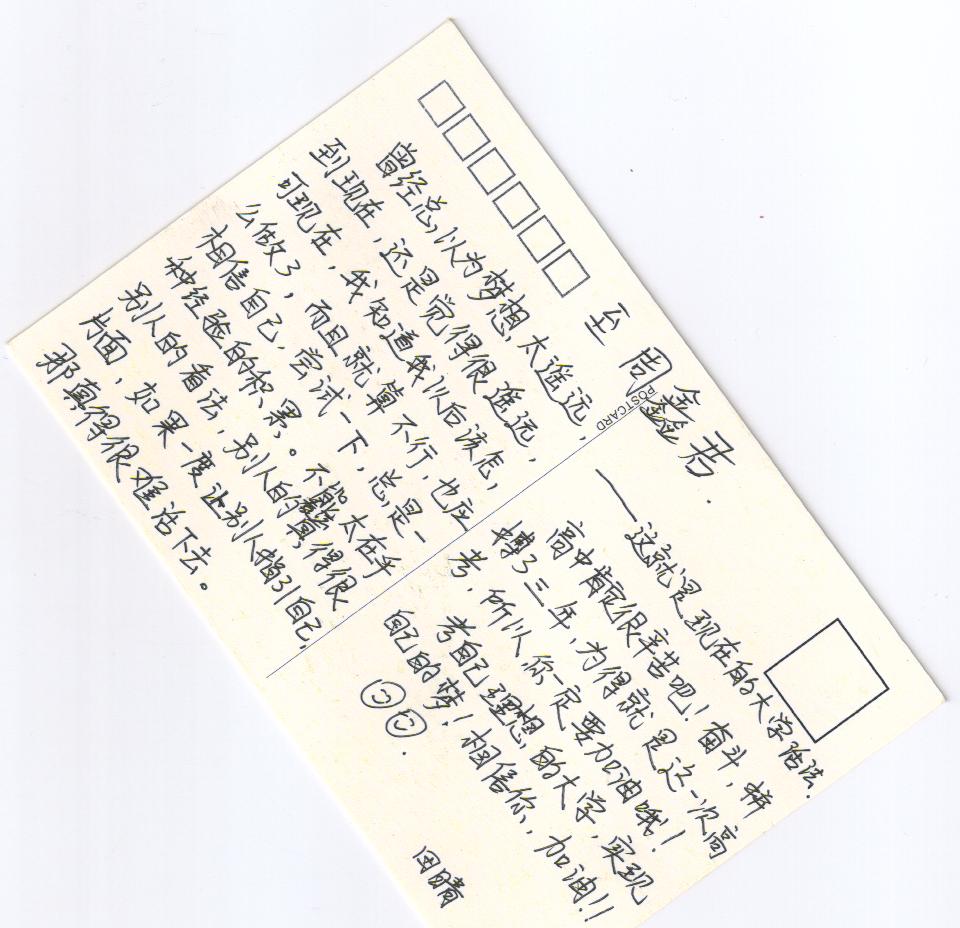 至 周鑫君.
POSTCARD
曾经总以为梦想太遥远,
到现在,还是觉得很遥远,
可现在,我知道我以后该怎
么做了,而且就算不行,也应
相信自己,尝试一下,总是一
种经验的积累。不能太在乎
别人的看法,别人的真得很
片面,如果一度让别人指引自己.
那真得很难活下去。
——这就是现在的大学活法.
高中肯定很辛苦吧!奋斗,拼
搏了三年,为得就是这一次高
考,所以你一定要加油哦!
考自己理想的大学,实现
自己的梦!相信你,加油!!
田晴